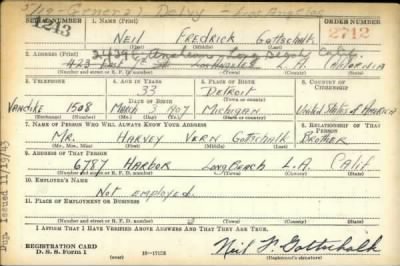 5/12-General Delvy - Los Angeles
SERIAL NUMBER 1. NAME (Print) ORDER NUMBER
1213 NEIL FREDRICK Gottschalk 2712
(First) (Middle) (Last)
2. ADDRESS (Print) 2439 E Anaheim, Long Beach Calif.
423 Los Angeles L.A. California
(Number and street or R. F. D. number) (Town) (County) (State)
3. TELEPHONE 4. AGE IN YEARS 5. PLACE OF BIRTH 6. COUNTRY OF CITIZENSHIP
33 Detroit
DATE OF BIRTH
Vandike 1508 March 3 1907 Michigan United States of America
(Exchange) (Number) (Mo.) (Day) (Yr.) (State or country)
7. NAME OF PERSON WHO WILL ALWAYS KNOW YOUR ADDRESS 8. RELATIONSHIP OF THAT PERSON
Mr. HARVEY VERN Gottschalk BROTHER
(Mr., Mrs., Miss) (First) (Middle) (Last)
9. ADDRESS OF THAT PERSON
6787 HARBOR LONG BEACH L.A. Calif
(Number and street or R. F. D. number) (Town) (County) (State)
10. EMPLOYER'S NAME
Not employed
11. PLACE OF EMPLOYMENT OR BUSINESS
(Number and street or R. F. D. number) (Town) (County) (State)
I AFFIRM THAT I HAVE VERIFIED ABOVE ANSWERS AND THAT THEY ARE TRUE.
REGISTRATION CARD
D. S. S. Form 1 16-17105 Neil F. Gottschalk
Dup. issued 11/19/43